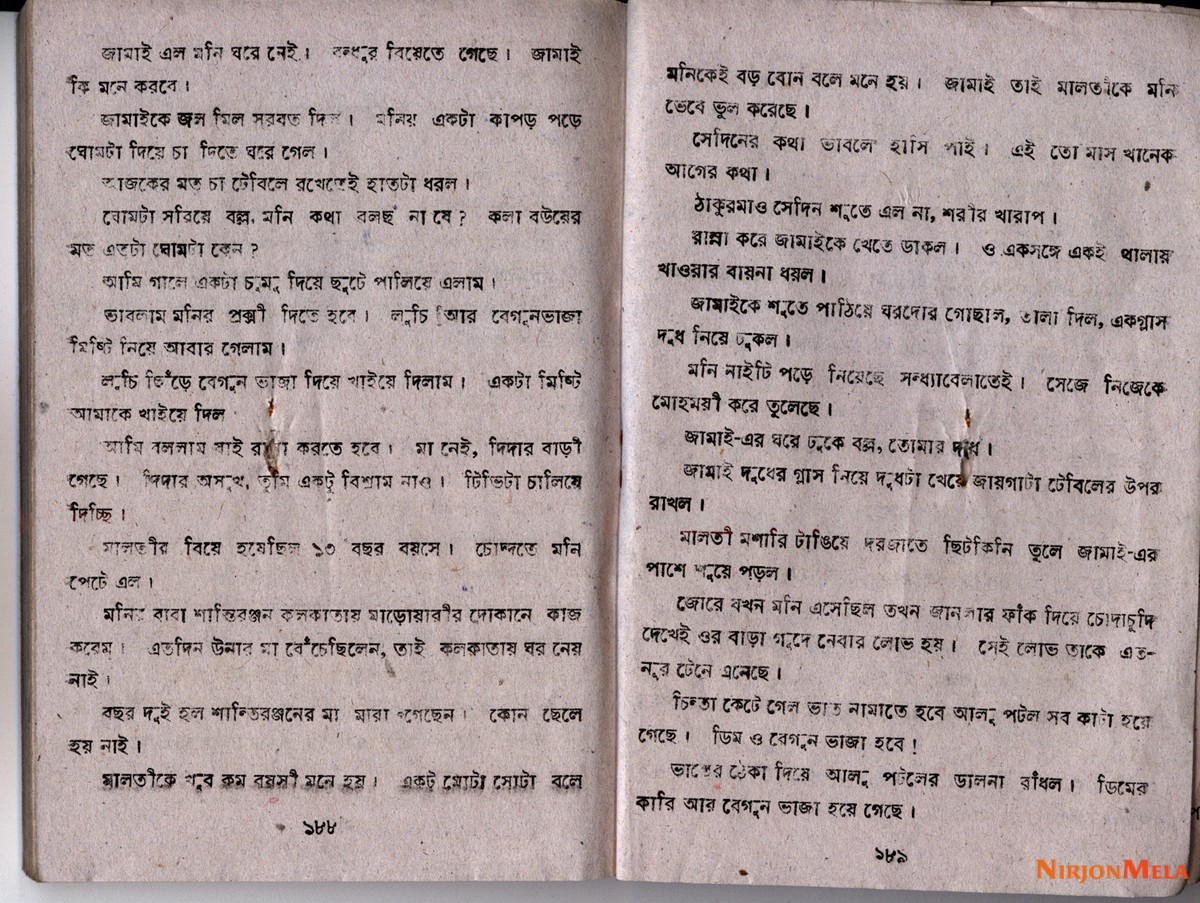 জামাই এল মনি ঘরে নেই। বন্ধুর বিয়েতে গেছে। জামাই
কি মনে করবে।
জামাইকে জল মিল সরবত দিল। মনির একটা কাপড় পড়ে
ঘোমটা দিয়ে চা দিতে ঘরে গেল।
আজকের মত চা টেবিলে রখেতেই হাতটা ধরল।
ঘোমটা সরিয়ে বল্ল, মনি কথা বলছ না যে? কলা বউয়ের
মত এতটা ঘোমটা কেন?
আমি গালে একটা চুমু দিয়ে ছুটে পালিয়ে এলাম।
ভাবলাম মনির প্রক্সী দিতে হবে। লুচি আর বেগুনভাজা
মিষ্টি নিয়ে আবার গেলাম।
লুচি ছিঁড়ে বেগুন ভাজা দিয়ে খাইয়ে দিলাম। একটা মিষ্টি
আমাকে খাইয়ে দিল
আমি বললাম যাই রান্না করতে হবে। মা নেই, দিদার বাড়ী
গেছে। দিদার অসুখ, তুমি একটু বিশ্রাম নাও। টিভিটা চালিয়ে
দিচ্ছি।
মালতীর বিয়ে হয়েছিল ১৩ বছর বয়সে। চোদ্দতে মনি
পেটে এল।
মনির বাবা শান্তিরঞ্জন কলকাতায় মাড়োয়ারীর দোকানে কাজ
করেম। এতদিন উনার মা বেঁচেছিলেন, তাই কলকাতায় ঘর নেয়
নাই।
বছর দুই হল শান্তিরঞ্জনের মা মারা গেছেন। কোন ছেলে
হয় নাই।
মালতীকে খুব কম বয়সী মনে হয়। একটু মোটা সোটা বলে
১৮৮
মনিকেই বড় বোন বলে মনে হয়। জামাই তাই মালতীকে মনি
ভেবে ভুল করেছে।
সেদিনের কথা ভাবলে হাসি পাই। এই তো মাস খানেক
আগের কথা।
ঠাকুরমাও সেদিন শুতে এল না, শরীর খারাপ।
রান্না করে জামাইকে খেতে ডাকল। ও একসঙ্গে একই থালায়
খাওয়ার বায়না ধরল।
জামাইকে শুতে পাঠিয়ে ঘরদোর গোছাল, তালা দিল, একগ্লাস
দুধ নিয়ে ঢুকল।
মনি নাইটি পড়ে নিয়েছে সন্ধ্যাবেলাতেই। সেজে নিজেকে
মোহময়ী করে তুলেছে।
জামাই-এর ঘরে ঢুকে বল্ল, তোমার দুধ।
জামাই দুধের গ্লাস নিয়ে দুধটা খেয়ে জায়গাটা টেবিলের উপর
রাখল।
মালতী মশারি টাঙিয়ে দরজাতে ছিটকিনি তুলে জামাই-এর
পাশে শুয়ে পড়ল।
জোরে যখন মনি এসেছিল তখন জানলার ফাঁক দিয়ে চোদাচুদি
দেখেই ওর বাড়া গুদে নেবার লোভ হয়। সেই লোভ তাকে এত-
দূর টেনে এনেছে।
চিন্তা কেটে গেল ভাত নামাতে হবে আলু পটল সব কাটা হয়ে
গেছে। ডিম ও বেগুন ভাজা হবে!
ভাতের ঠেকা দিয়ে আলু পটলের ডালনা রাঁধল। ডিমের
কারি আর বেগুন ভাজা হয়ে গেছে।
১৮৯
NIRJONMELA